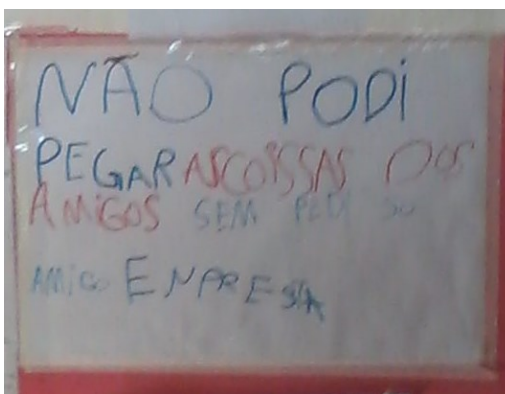 NÃO PODI
PEGAR AS COISSAS DOS
AMIGOS SEM PEDI SO
AMIGO ENPRESTA